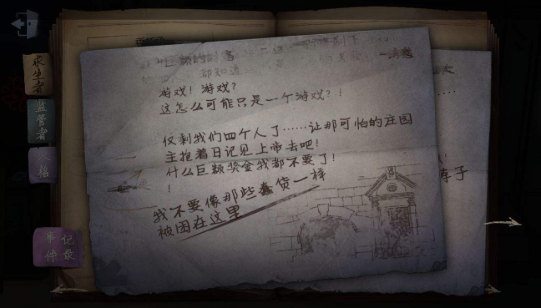 求生者
监管者
事件
记载
都知道
游戏！游戏？
这怎么可能只是一个游戏？！
仅剩我们四个人了……让那可怕的庄园
主抱着日记见上帝去吧！
什么巨额奖金我都不要了！
！
我不要像那些蠢货一样
被困在这里